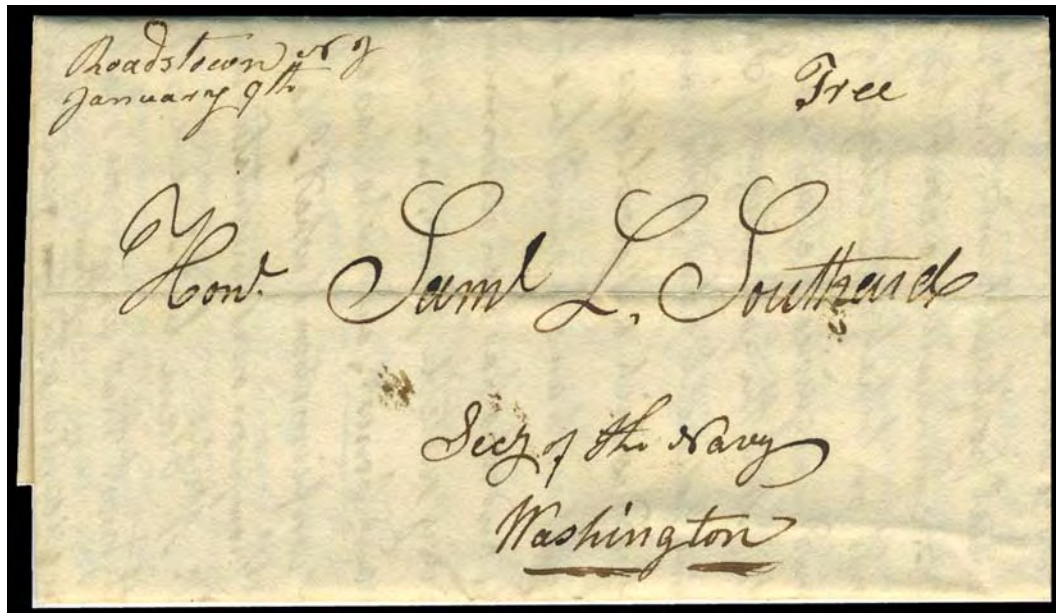 Roadstown N J
January 9th
Free
Hon. Saml L. Southard
Secy of the Navy
Washington